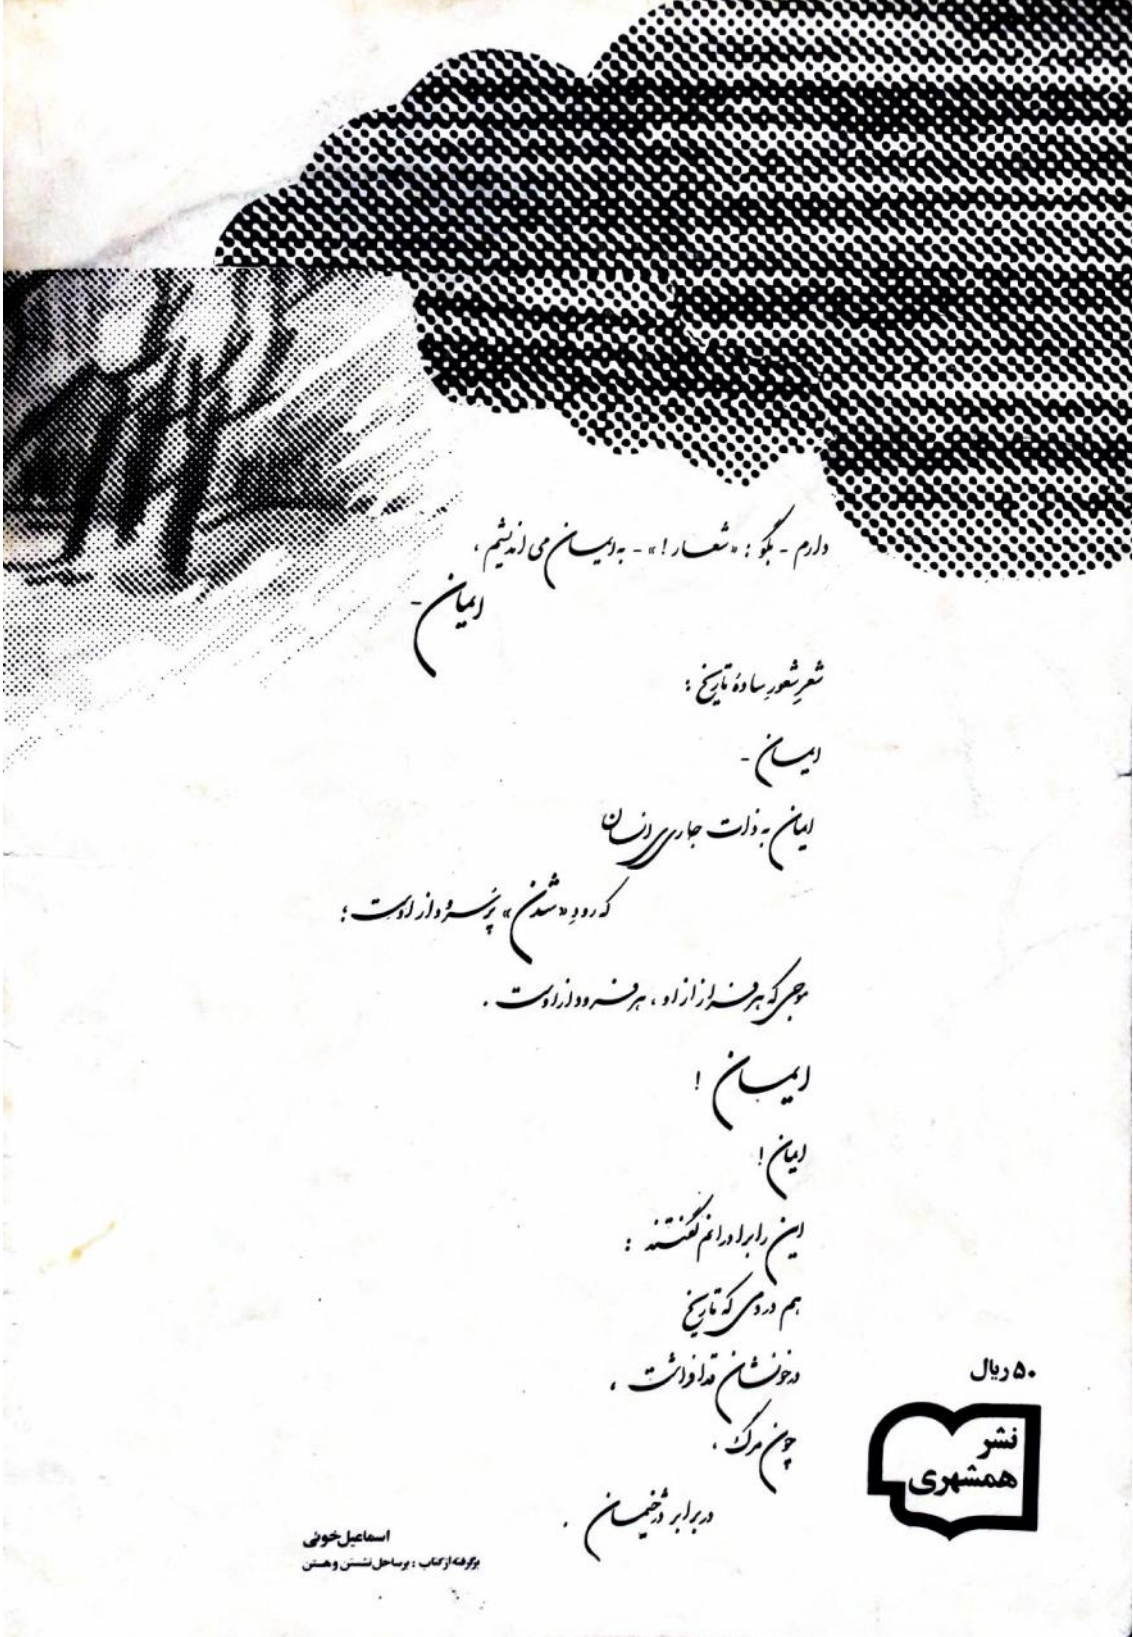 دارم - بگو : «شعار !» - به ایمان می اندیشم ،
ایمان -
شعرِ شعورِ سادهٔ تاریخ :
ایمان -
ایمان به ذات جاری انسان
که رودِ «شدن» پُر سرود از اوست ؛
موجی که هر فراز از او ، هر فرود از اوست .
ایمان !
ایمان !
این را برادرانم گفتند :
هم در دمی که تاریخ
در خونشان قد افراشت ،
چون مرگ ،
در برابر دژخیمان .
۵۰ ریال
نشر
همشهری
اسماعیل خوئی
برگرفته از کتاب : بر ساحل نشستن و هستن